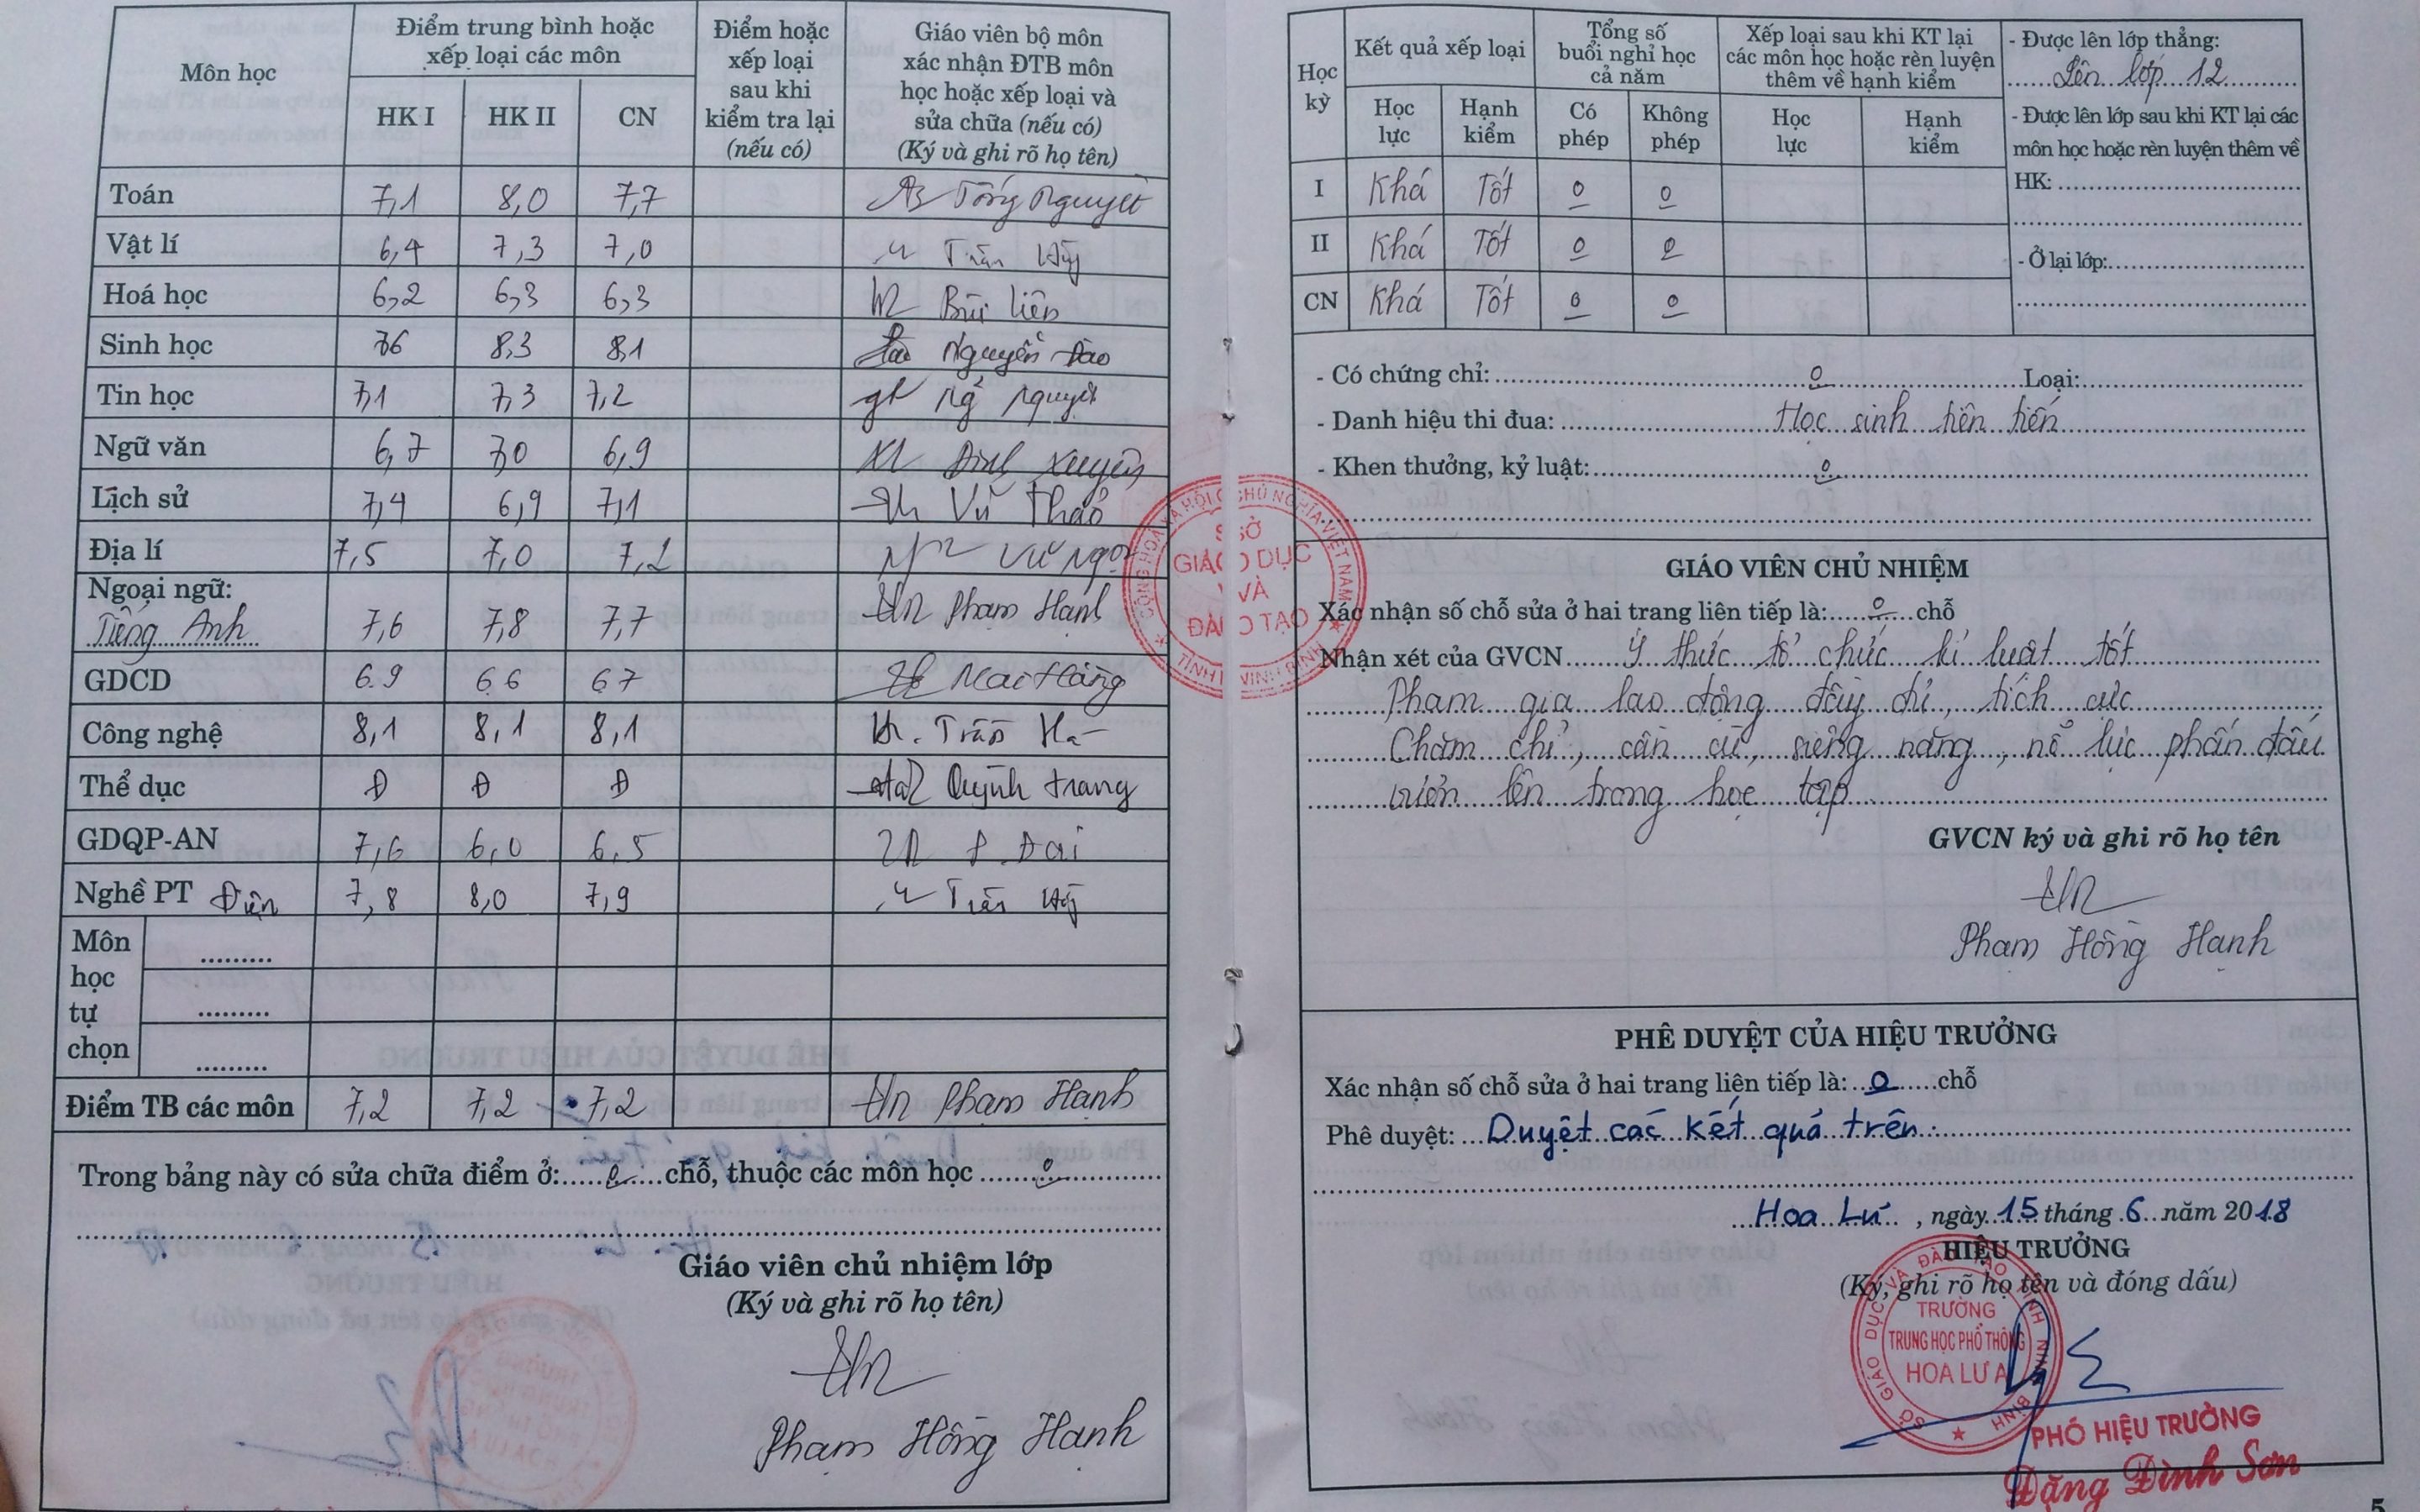 Môn học
Điểm trung bình hoặc
xếp loại các môn
HK I HK II CN
Điểm hoặc
xếp loại
sau khi
kiểm tra lại
(nếu có)
Giáo viên bộ môn
xác nhận ĐTB môn
học hoặc xếp loại và
sửa chữa (nếu có)
(Ký và ghi rõ họ tên)
Toán 7,1 8,0 7,7 Tống Nguyệt
Vật lí 6,4 7,3 7,0 Trần
Hoá học 6,2 6,3 6,3 Bùi Liên
Sinh học 76 8,3 8,1 Nguyễn Đào
Tin học 7,1 7,3 7,2 Ng Nguyệt
Ngữ văn 6,7 7,0 6,9 Đinh Xuyên
Lịch sử 7,4 6,9 7,1 Vũ Thảo
Địa lí 7,5 7,0 7,2 Vũ Ngọc
Ngoại ngữ:
Tiếng Anh 7,6 7,8 7,7 Phạm Hạnh
GDCD 6.9 6 6 6 7 Mai Hằng
Công nghệ 8,1 8,1 8,1 Trần Hà
Thể dục Đ Đ Đ Quỳnh Trang
GDQP-AN 7,6 6,0 6,5 P. Đại
Nghề PT Điện 7,8 8,0 7,9 Trần
Môn
học
tự
chọn
Điểm TB các môn 7,2 7,2 7,2 Phạm Hạnh
Trong bảng này có sửa chữa điểm ở:.....0.....chỗ, thuộc các môn học.......0.......
Giáo viên chủ nhiệm lớp
(Ký và ghi rõ họ tên)
Phạm Hồng Hạnh
Học
kỳ
Kết quả xếp loại
Học
lực
Hạnh
kiểm
Tổng số
buổi nghỉ học
cả năm
Có
phép
Không
phép
Xếp loại sau khi KT lại
các môn học hoặc rèn luyện
thêm về hạnh kiểm
Học
lực
Hạnh
kiểm
- Được lên lớp thẳng:
Lên lớp 12
- Được lên lớp sau khi KT lại các
môn học hoặc rèn luyện thêm về
HK:
- Ở lại lớp:
I Khá Tốt 0 0
II Khá Tốt 0 0
CN Khá Tốt 0 0
- Có chứng chỉ: 0 Loại:
- Danh hiệu thi đua: Học sinh tiên tiến
- Khen thưởng, kỷ luật: 0
CỘNG HOÀ XÃ HỘI CHỦ NGHĨA VIỆT NAM
SỞ
GIÁO DỤC
VÀ
ĐÀO TẠO
TỈNH NINH BÌNH
GIÁO VIÊN CHỦ NHIỆM
Xác nhận số chỗ sửa ở hai trang liên tiếp là: 0 chỗ
Nhận xét của GVCN Ý thức tổ chức kỉ luật tốt
Tham gia lao động đầy đủ, tích cực
Chăm chỉ, cần cù, siêng năng, nỗ lực phấn đấu
vươn lên trong học tập
GVCN ký và ghi rõ họ tên
Phạm Hồng Hạnh
PHÊ DUYỆT CỦA HIỆU TRƯỞNG
Xác nhận số chỗ sửa ở hai trang liên tiếp là: 0 chỗ
Phê duyệt: Duyệt các kết quả trên.
Hoa Lư, ngày 15 tháng 6 năm 2018
HIỆU TRƯỞNG
(Ký, ghi rõ họ tên và đóng dấu)
SỞ GIÁO DỤC VÀ ĐÀO TẠO TỈNH NINH BÌNH
TRƯỜNG
TRUNG HỌC PHỔ THÔNG
HOA LƯ A
PHÓ HIỆU TRƯỞNG
Đặng Đình Sơn
5